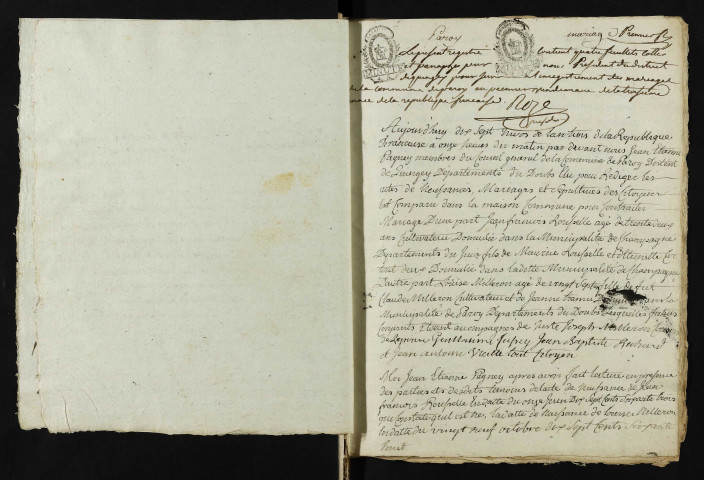 Paroy mariag premier
Le present registre contient quatre feuillets cotté
et paraphés pour nous President du district
de quingey pour servir a l'enregistrement des mariages
de la commune de paroy au premier vendemiaire de la troisieme
année de la republique francaise Roze
Aujourd'huy dix Sept nivos de Lan trois de la Republique
francaise a onze heures du matin par devant nous Jean Etienne
Pagney membres du Conseil general de la Commune de Paroy District
de Quingey Departements du Doubs Elu pour Rediger les
actes de Naissances, Mareages et Sepultures des Citoyens
Est Comparu dans la maison Commune pour Contracter
Mariage D'une part Jean francois Rouselle agé de trente deux
ans Cultivateur Domicilié dans la Municipalité de Champagne
Departements du Jura fils de Maurice Rousselle et d'Etiennette
tout deux Domicilié dans ladotte Municipalité de Champagne
D'autre part Louise Milleron agé de vingt Sept fille de feut
Claude Milleron Cultivateur et de Jeanne dans la
Municipalité de Paroy Departements du Doubs Lesquelles futures
Conjoints Etoient accompagnes de Juste Joseph Milleron
de Guillaume Jean Baptiste Richard
et Jean Antoine Vieille tout Citoyen
Moi Jean Etienne Pagney apres avoir fait lecture en presence
des parties et desdits temoins de lacte de Naissance de Jean
francois Rousselle En datte du onze Juin Dix Sept Cents Soixante trois
que Constate quil est né, lacdate de Naissance de Louise Milleron
En datte du vingt neuf octobre dix Sept Cents Soixante